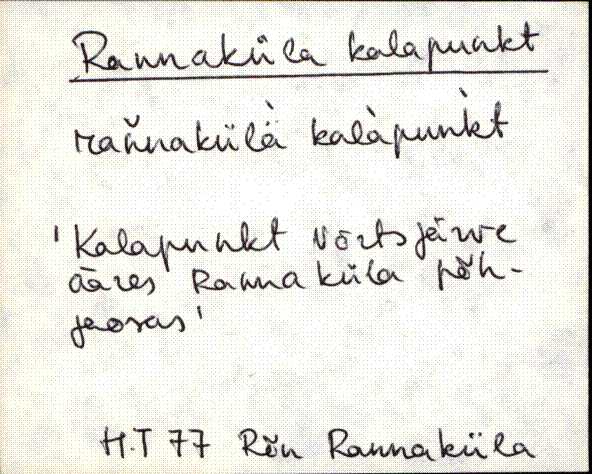 Rannaküla kalapunkt
rań̆nakülà kalàpuǹkt
'Kalapunkt Võrtsjärve
ääres Rannaküla põh-
jaosas'
H.T 77 Rõn Rannaküla